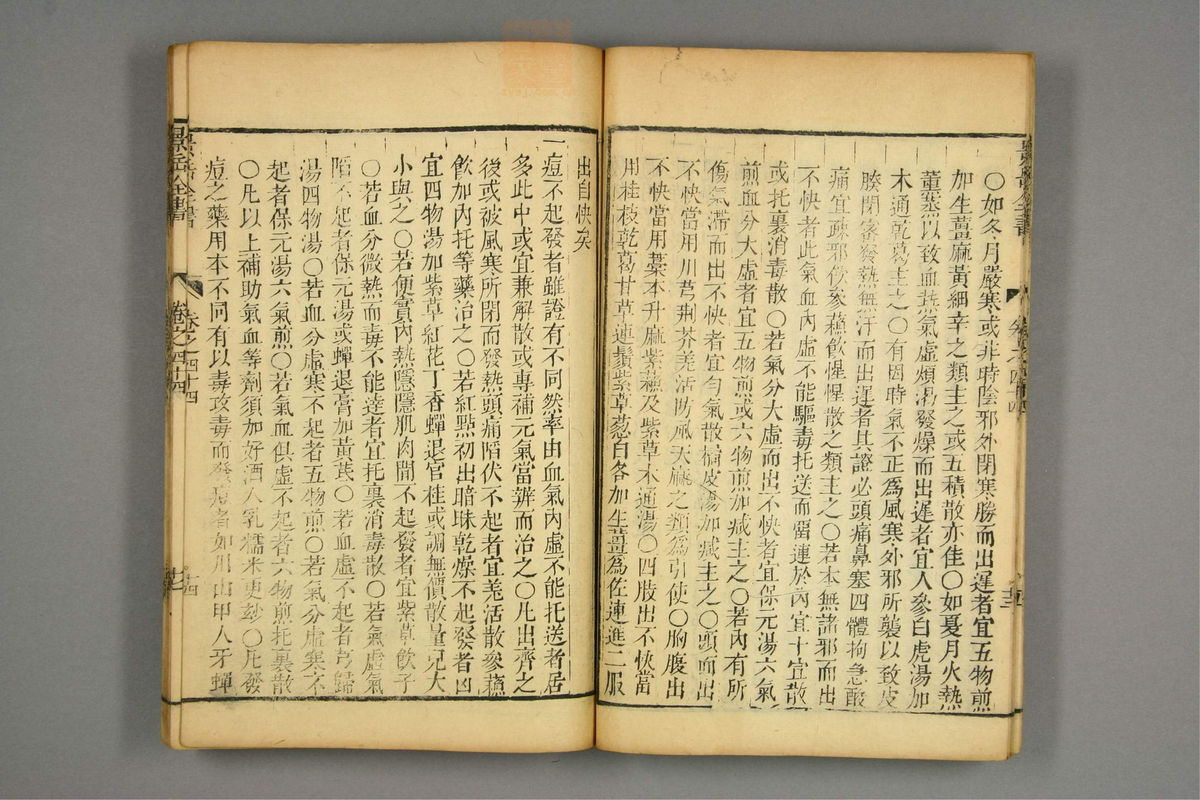 〇如冬月嚴寒或非時陰邪外閉寒勝而出遲者宜五物煎
加生薑麻黃細辛之類主之或五積散亦佳〇如夏月火熱
薰蒸以致血熱氣虛煩渴發燥而出遲者宜人參白虎湯加
木通乾葛主之〇有因時氣不正爲風寒外邪所襲以致皮
腠閉密發熱無汗而出遲者其證必頭痛鼻塞四體拘急酸
痛宜疎邪飲參蘇飲惺惺散之類主之〇若本無諸邪而出
不快者此氣血內虛不能驅毒托送而畱連於內宜十宣散
或托裏消毒散〇若氣分大虛而出不快者宜保元湯六氣
煎血分大虛者宜五物煎或六物煎加減主之〇若內有所
傷氣滯而出不快者宜勻氣散橘皮湯加減主之〇頭面出
不快當用川芎荊芥羌活防風天麻之類爲引使〇胸腹出
不快當用藁本升麻紫蘇及紫草木通湯〇四肢出不快當
用桂枝乾葛甘草連鬚葱白各加生薑爲佐連進二服
出自快矣
一痘不起發者雖證有不同然率由血氣內虛不能托送者居
多此中或宜兼解散或專補元氣當辨而治之〇凡出齊之
後或被風寒所閉而發熱頭痛陷伏不起者宜羌活散參蘇
飲加內托等藥治之〇若紅點初出暗昧乾燥不起發者
宜四物湯加紫草紅花丁香蟬退官桂或調無價散量兒大
小與之〇若便實內熱隱隱肌肉間不起發者宜紫草飲子
〇若血分微熱而毒不能達者宜托裏消毒散〇若氣虛氣
陷不起者保元湯或蟬退膏加黃芪〇若血虛不起者芎歸
湯四物湯〇若血分虛寒不起者五物煎〇若氣分虛寒不
起者保元湯六氣煎〇若氣血俱虛不起者六物煎托裏散
〇凡以上補助氣血等劑須加好酒人乳糯米更玅〇凡發
痘之藥用本不同有以毒攻毒而發痘者如川山甲人牙蟬
景岳全書
卷之四十四